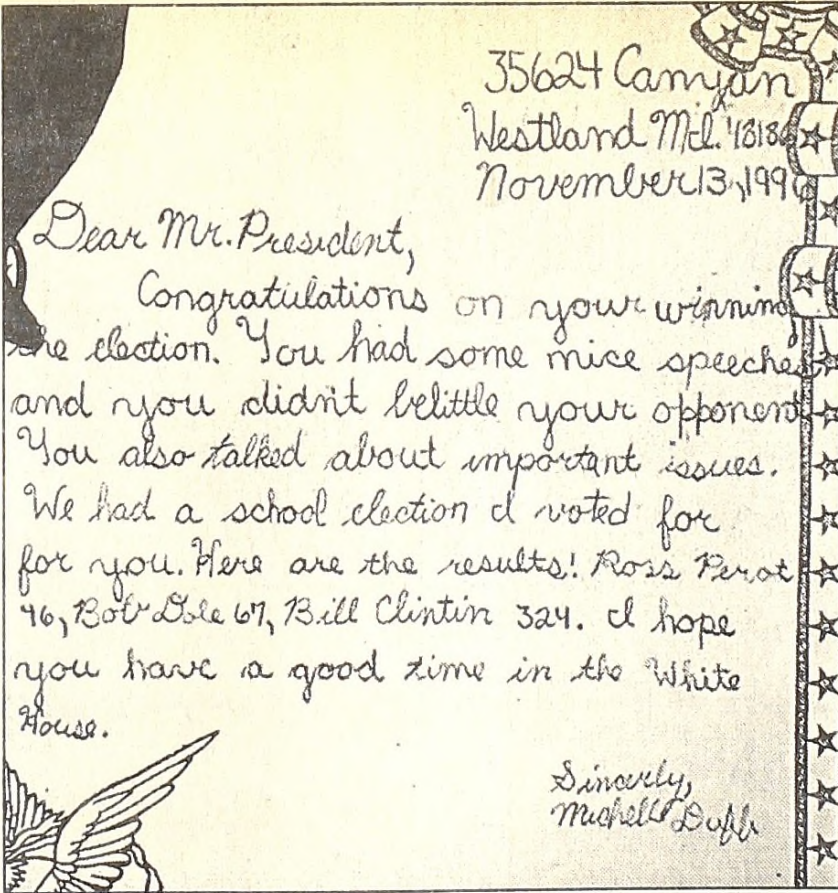 35624 Canyon
Westland Mi. 48186
November 13, 1996
Dear Mr. President,
Congratulations on your winning
the election. You had some nice speeches
and you didn't belittle your opponent
You also talked about important issues.
We had a school election I voted for
for you. Here are the results! Ross Perot
46, Bob Dole 67, Bill Clintin 324. I hope
you have a good time in the White
House.
Sincerly,
Michelle Duff